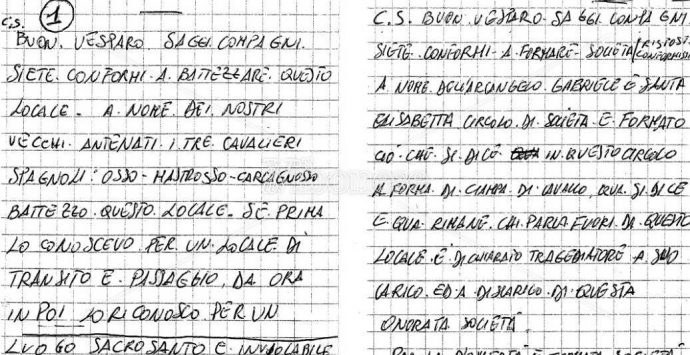 C.S. 1
BUON. VESPARO SAGGI COMPAGNI.
SIETE. CONFORMI. A. BATTEZZARE. QUESTO
LOCALE. A. NOME. DEI. NOSTRI
VECCHI. ANTENATI. I TRE. CAVALIERI
SPAGNOLI: OSSO- MASTROSSO- CARCAGNOSSO
BATTEZZO. QUESTO. LOCALE. SE PRIMA
LO CONOSCEVO. PER. UN. LOCALE. DI
TRANSITO E. PASSAGGIO, DA ORA
IN POI LO RICONOSCO. PER UN
LUOGO SACROSANTO E INVIOLABILE
C.S. BUON VESPARO. SAGGI COMPAGNI
SIETE. CONFORMI. A. FORMARE. SOCIETA'
A NOME DELL'ARCANGELO. GABRIELE E SANTA
ELISABETTA CIRCOLO. DI. SOCIETA E. FORMATO
CIÓ. CHE. SI. DICE IN QUESTO CIRCOLO
A FORMA. DI. CIAMPA. DI. CAVALLO, QUA. SI. DICE
E. QUA. RIMANE. CHI. PARLA FUORI. DA. QUESTO
LOCALE. E'. DICHIARATO TRAGEDIATORE A SUO
CARICO. ED. A. DISCARICO. DI. QUESTA
ONORATA SOCIETA'